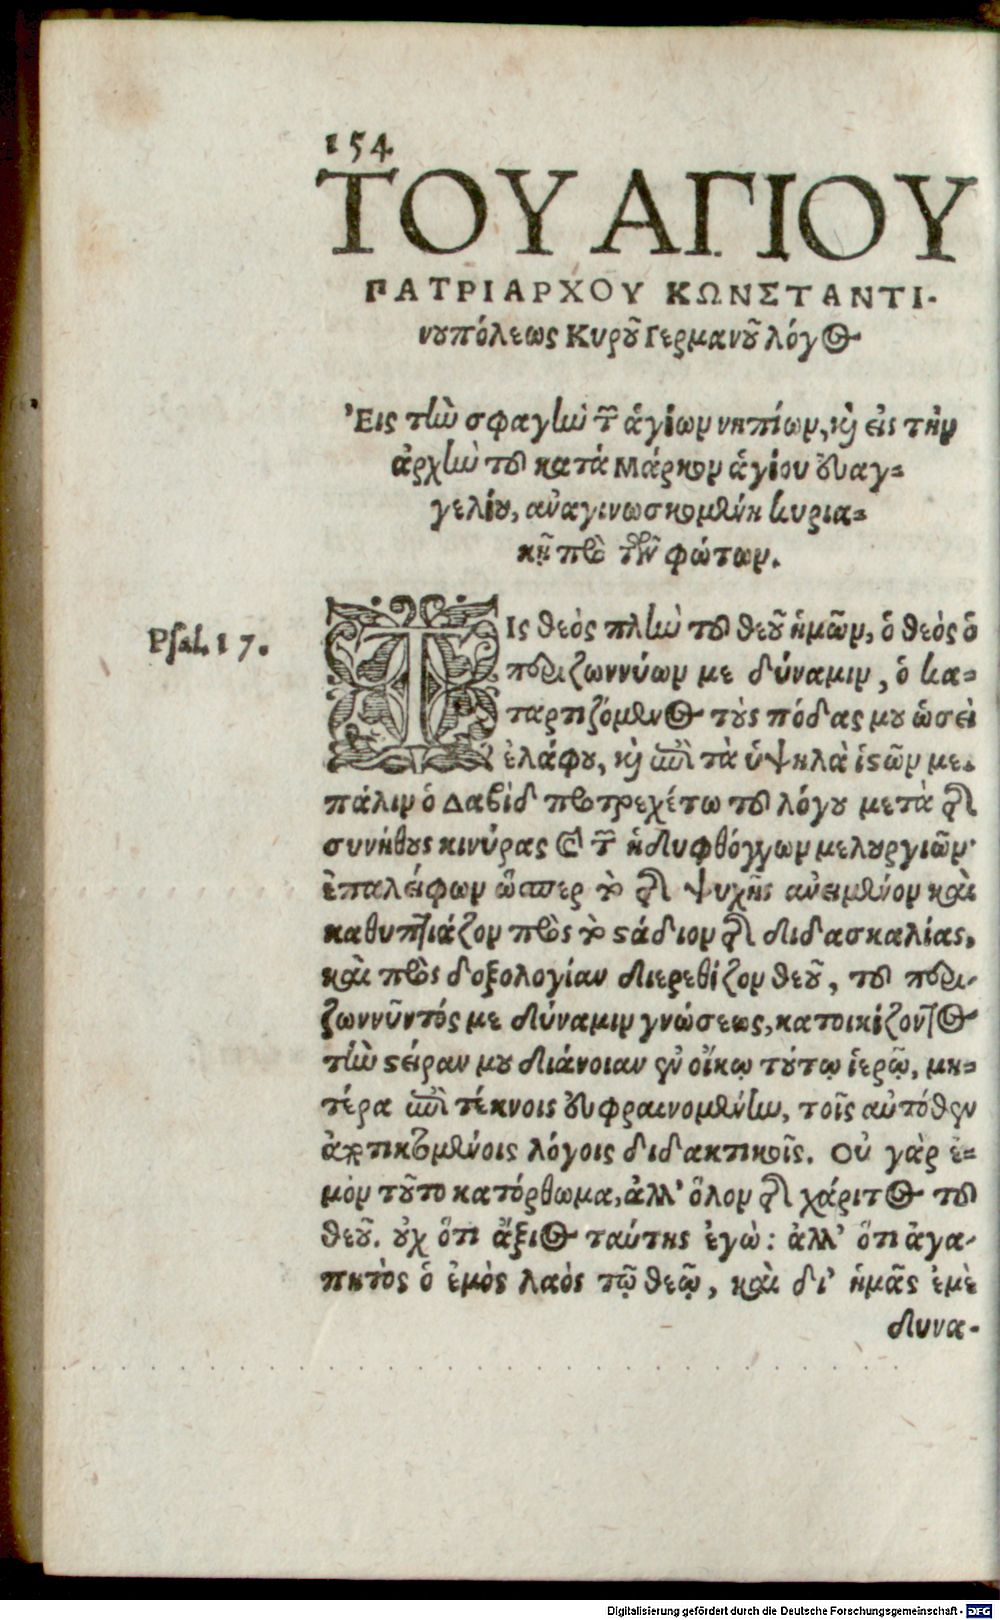 154
ΤΟΥ ΑΓΙΟΥ
ΠΑΤΡΙΑΡΧΟΥ ΚΩΝΣΤΑΝΤΙ-
νουπόλεως Κυροῦ Γερμανοῦ λόγος
Ἐις τὴν σφαγὴν τῶν ἁγίων νηπίων, καὶ εἰς τὴν
ἀρχὴν τοῦ κατὰ Μάρκον ἁγίου ευαγ-
γελίου, ἀναγινωσκομένη κυρια-
κῇ πρὸ τῶν φώτων.
Psal. 17.
ΤΙς θεὸς πλὴν τοῦ θεοῦ ἡμῶν, ὁ θεὸς ὁ
περιζωννύων με δύναμιν, ὁ κα-
ταρτιζόμενος τοὺς πόδας μου ὡσεὶ
ἐλάφου, καὶ ἐπὶ τὰ ὑψηλὰ ἱστῶν με.
πάλιν ὁ Δαβὶδ προτρεχέτω τοῦ λόγου μετὰ τῆς
συνήθους κινύρας καὶ τῶν ἡδυφθόγγων μελουργιῶν·
ἐπαλείφων ὥσπερ τὸ τῆς ψυχῆς ἀνειμένον καὶ
καθυπτιάζον πρὸς τὸ στάδιον τῆς διδασκαλίας,
καὶ πρὸς δοξολογίαν διερεθίζον θεοῦ, τοῦ περι-
ζωννῦντός με δύναμιν γνώσεως, κατοικίζοντος
τὴν στείραν μου διάνοιαν ἐν οἴκῳ τούτῳ ἱερῷ, μη-
τέρα ἐπὶ τέκνοις ευφραινομένην, τοῖς αὐτόθεν
ἀρτικυομένοις λόγοις διδακτικοῖς. Οὐ γὰρ ἐ-
μὸν τοῦτο κατόρθωμα, ἀλλ' ὅλον τῆς χάριτος τοῦ
θεοῦ. οὐχ ὅτι ἄξιος ταύτης ἐγώ: ἀλλ' ὅτι ἀγα-
πητὸς ὁ ἐμὸς λαὸς τῷ θεῷ, καὶ δι' ἡμᾶς ἐμὲ
δυνα-
Digitalisierung gefördert durch die Deutsche Forschungsgemeinschaft - DFG